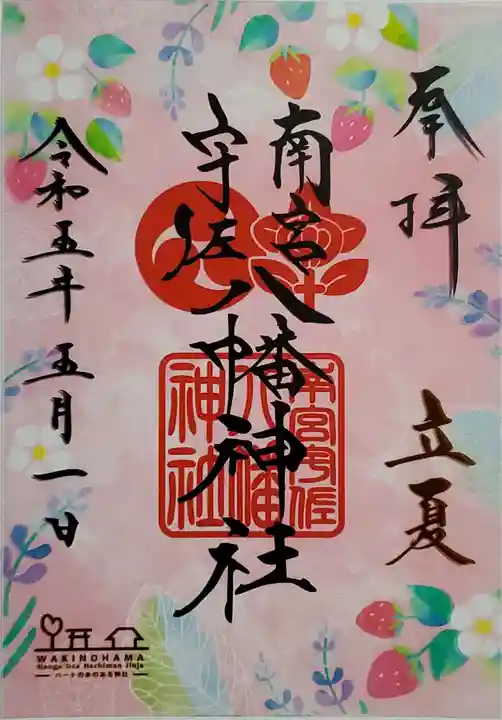 奉拝
立夏
南宮
宇佐
八幡神社
令和五年五月一日
南宮宇佐
八幡
神社
WAKINOHAMA
Nangu Usa Hachiman Jinja
ハートの木のある神社